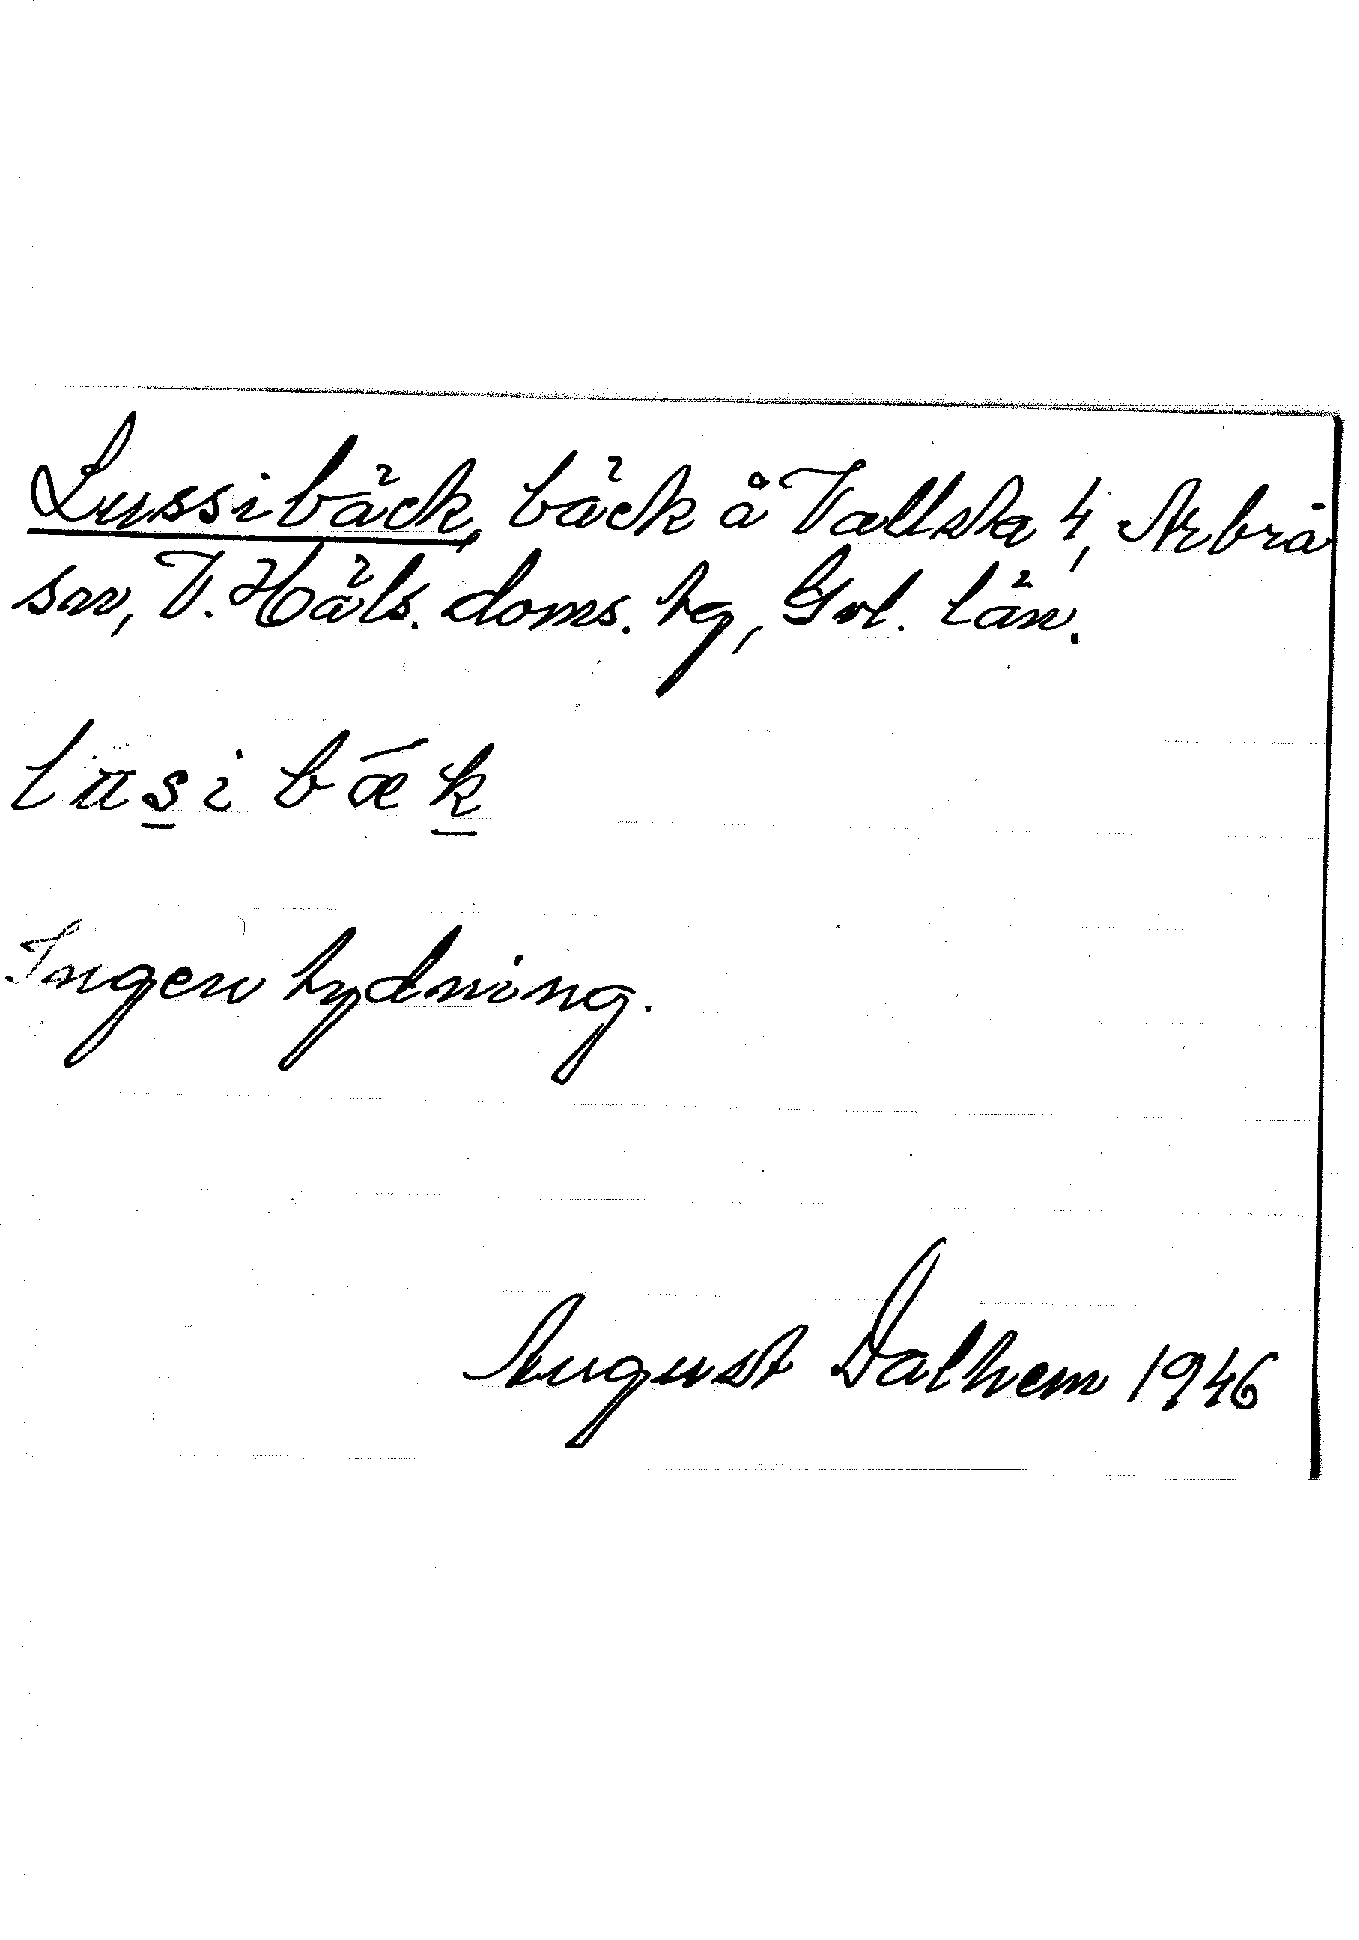 Lussibäck, bäck å Vallsta 4, Arbrå
sn, V. Häls. doms. tg, Gvl. län.
lusi bæk
Ingen tydning.
August Dalhem 1946